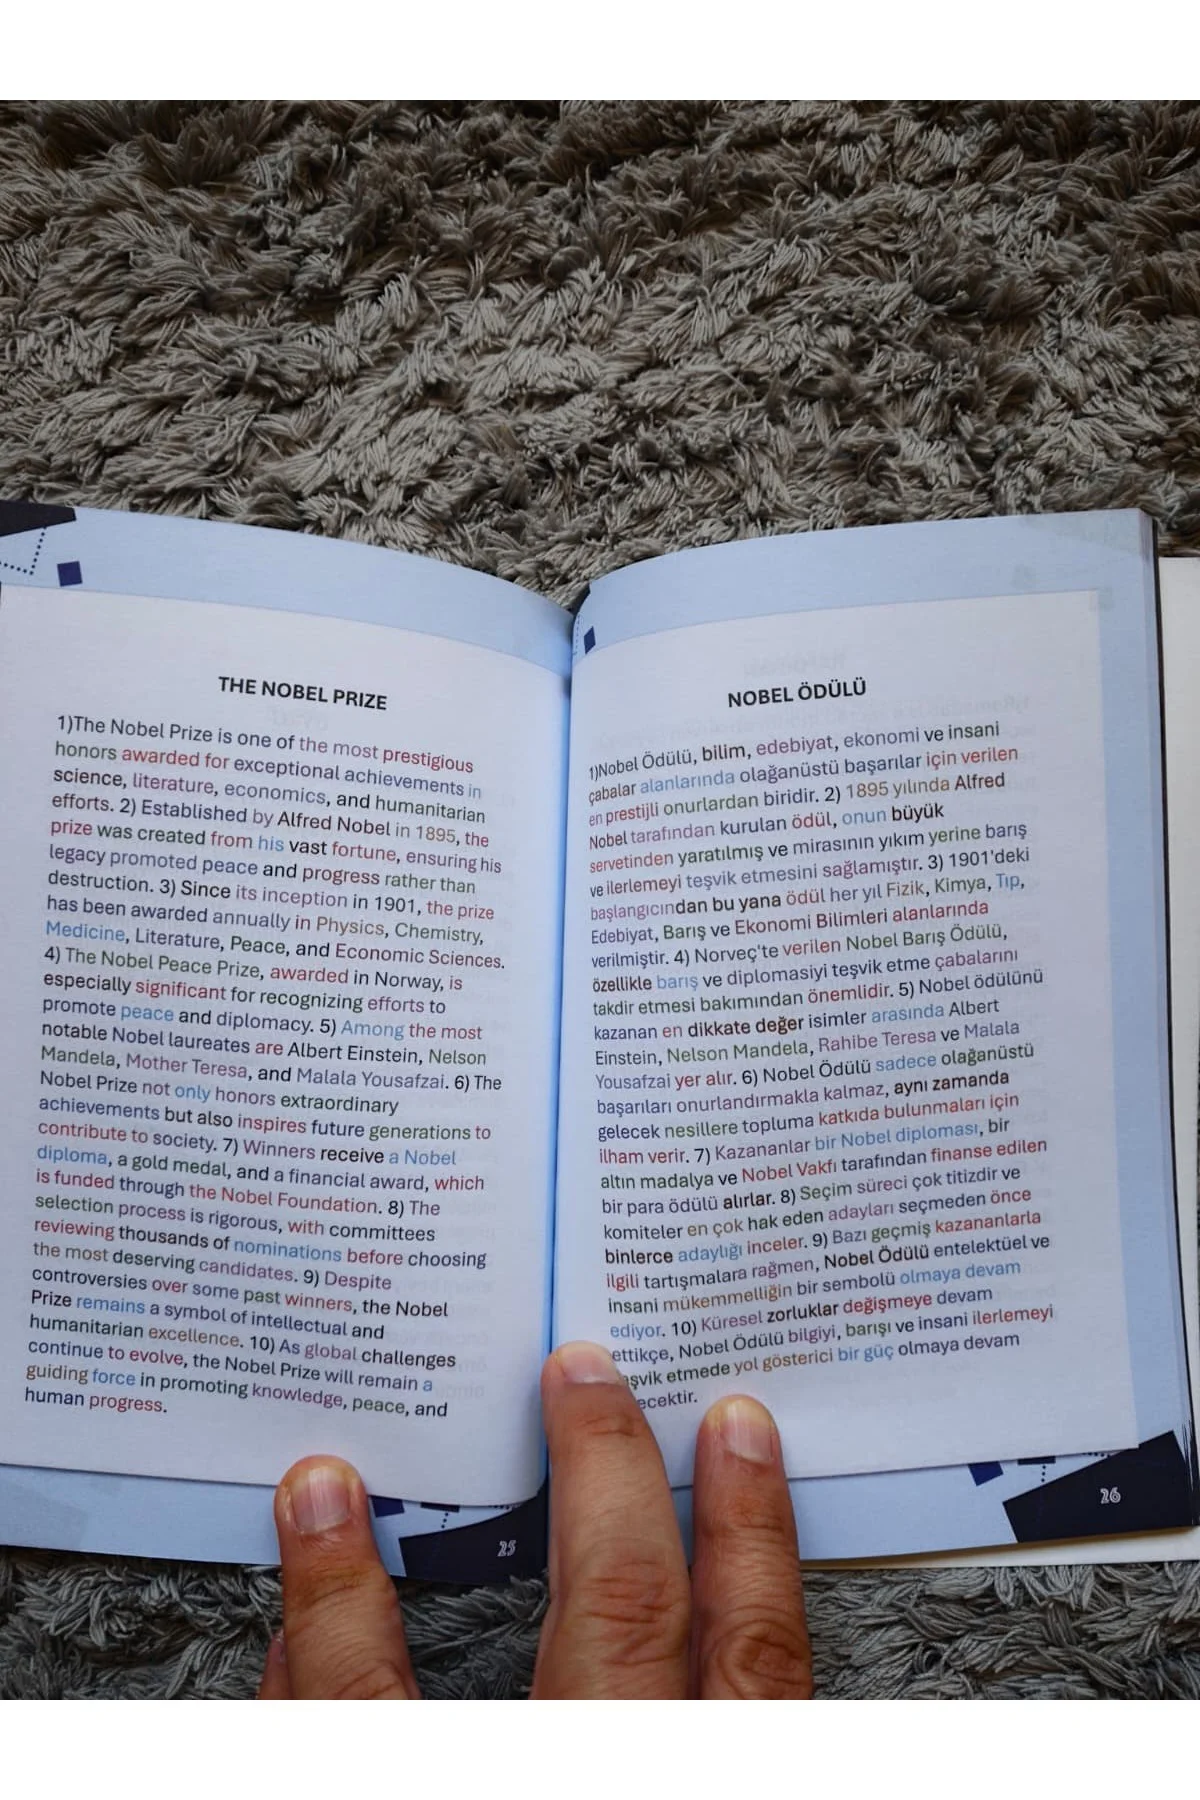 THE NOBEL PRIZE
1)The Nobel Prize is one of the most prestigious
honors awarded for exceptional achievements in
science, literature, economics, and humanitarian
efforts. 2) Established by Alfred Nobel in 1895, the
prize was created from his vast fortune, ensuring his
legacy promoted peace and progress rather than
destruction. 3) Since its inception in 1901, the prize
has been awarded annually in Physics, Chemistry,
Medicine, Literature, Peace, and Economic Sciences.
4) The Nobel Peace Prize, awarded in Norway, is
especially significant for recognizing efforts to
promote peace and diplomacy. 5) Among the most
notable Nobel laureates are Albert Einstein, Nelson
Mandela, Mother Teresa, and Malala Yousafzai. 6) The
Nobel Prize not only honors extraordinary
achievements but also inspires future generations to
contribute to society. 7) Winners receive a Nobel
diploma, a gold medal, and a financial award, which
is funded through the Nobel Foundation. 8) The
selection process is rigorous, with committees
reviewing thousands of nominations before choosing
the most deserving candidates. 9) Despite
controversies over some past winners, the Nobel
Prize remains a symbol of intellectual and
humanitarian excellence. 10) As global challenges
continue to evolve, the Nobel Prize will remain a
guiding force in promoting knowledge, peace, and
human progress.
25
NOBEL ÖDÜLÜ
1)Nobel Ödülü, bilim, edebiyat, ekonomi ve insani
çabalar alanlarında olağanüstü başarılar için verilen
en prestijli onurlardan biridir. 2) 1895 yılında Alfred
Nobel tarafından kurulan ödül, onun büyük
servetinden yaratılmış ve mirasının yıkım yerine barış
ve ilerlemeyi teşvik etmesini sağlamıştır. 3) 1901'deki
başlangıcından bu yana ödül her yıl Fizik, Kimya, Tıp,
Edebiyat, Barış ve Ekonomi Bilimleri alanlarında
verilmiştir. 4) Norveç'te verilen Nobel Barış Ödülü,
özellikle barış ve diplomasiyi teşvik etme çabalarını
takdir etmesi bakımından önemlidir. 5) Nobel ödülünü
kazanan en dikkate değer isimler arasında Albert
Einstein, Nelson Mandela, Rahibe Teresa ve Malala
Yousafzai yer alır. 6) Nobel Ödülü sadece olağanüstü
başarıları onurlandırmakla kalmaz, aynı zamanda
gelecek nesillere topluma katkıda bulunmaları için
ilham verir. 7) Kazananlar bir Nobel diploması, bir
altın madalya ve Nobel Vakfı tarafından finanse edilen
bir para ödülü alırlar. 8) Seçim süreci çok titizdir ve
komiteler en çok hak eden adayları seçmeden önce
binlerce adaylığı inceler. 9) Bazı geçmiş kazananlarla
ilgili tartışmalara rağmen, Nobel Ödülü entelektüel ve
insani mükemmelliğin bir sembolü olmaya devam
ediyor. 10) Küresel zorluklar değişmeye devam
ettikçe, Nobel Ödülü bilgiyi, barışı ve insani ilerlemeyi
etmede yol gösterici bir güç olmaya devam
26